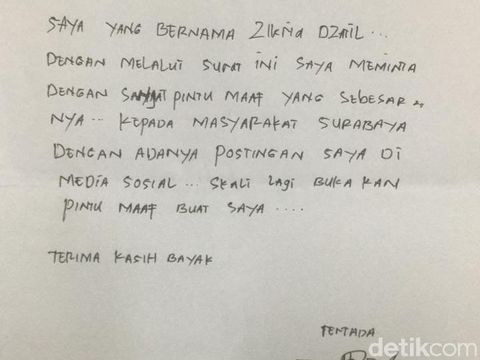 SAYA YANG BERNAMA ZIKRIA DZATIL...
DENGAN MELALUI SURAT INI SAYA MEMINTA
DENGAN SANGAT PINTU MAAF YANG SEBESAR"
NYA... KEPADA MASYARAKAT SURABAYA
DENGAN ADANYA POSTINGAN SAYA DI
MEDIA SOSIAL... SKALI LAGI BUKA KAN
PINTU MAAF BUAT SAYA....
TERIMA KASIH BAYAK
TERTADA
detikcom